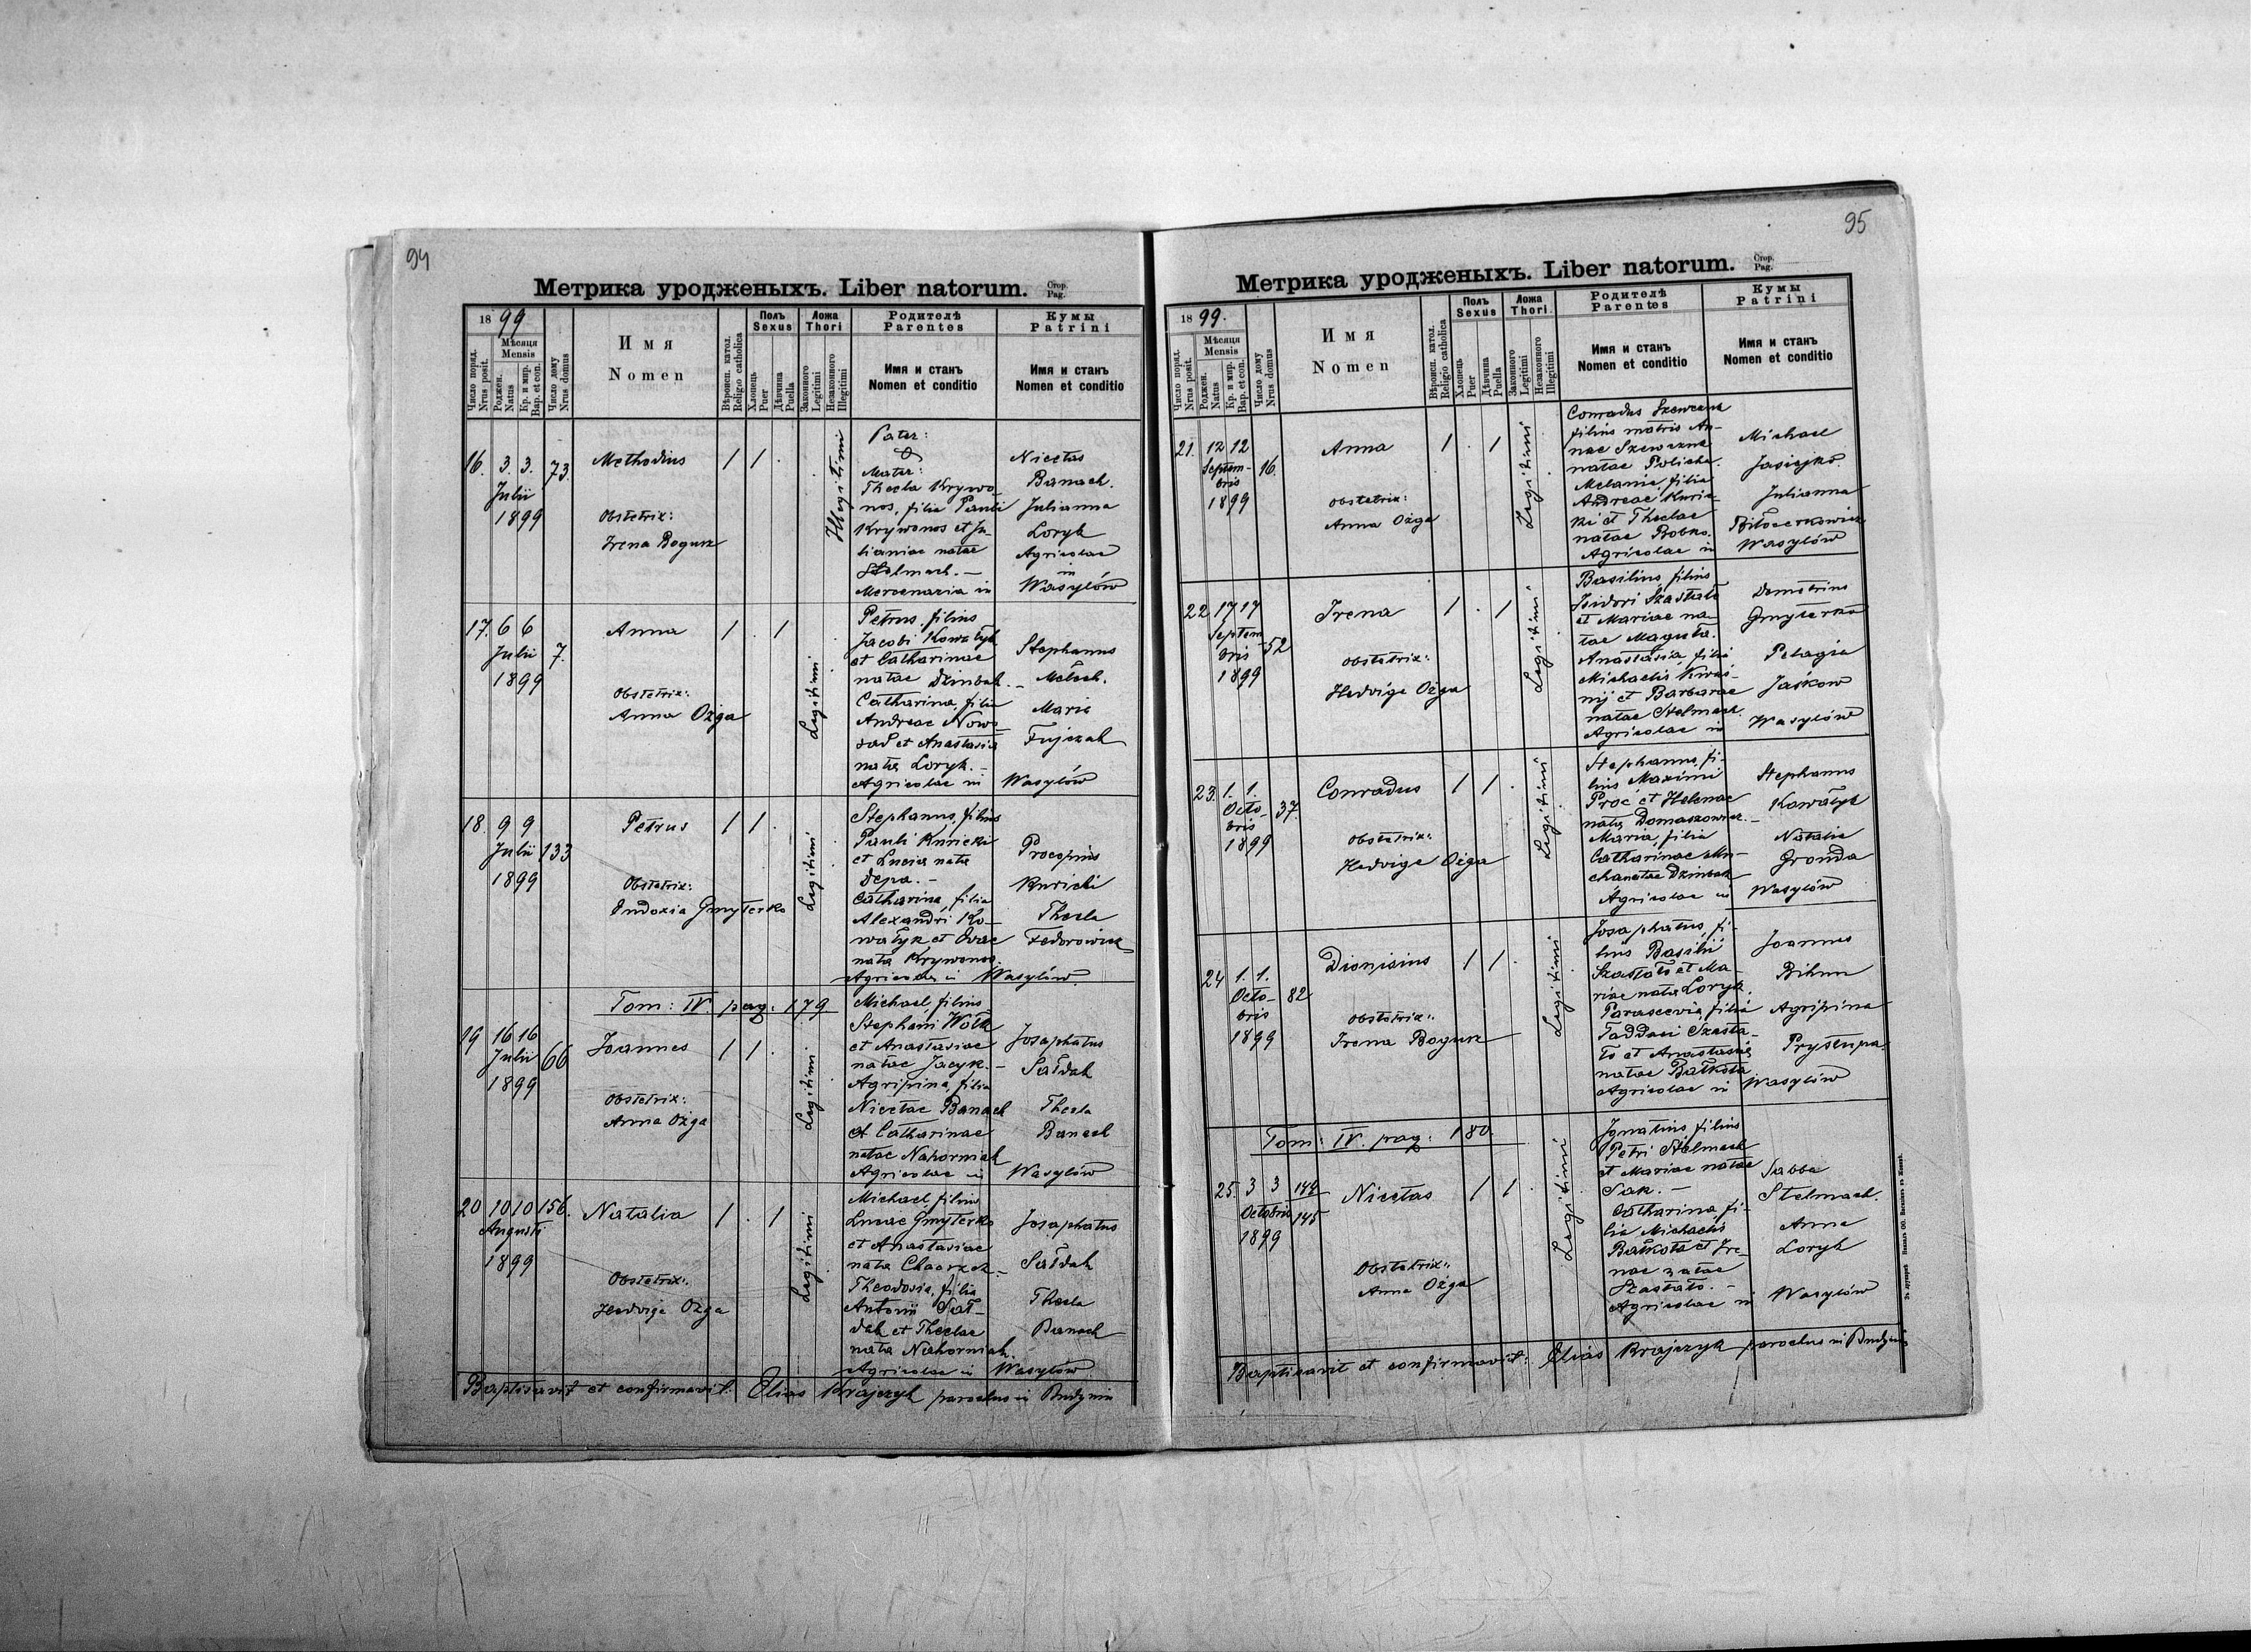 94
Метрика уродженыхъ. Liber natorum. Стор. Pag.
1899
Число поряд. Nrus posit.
Мѣсяця Mensis
Роджен. Natus
Кр. и мир. Bap. et con.
Число дому Nrus domus
Имя Nomen
Вѣроисп. катол. Religio catholica
Полъ Sexus
Хлопець Puer
Дѣвчина Puella
Ложа Thori
Законного Legitimi
Незаконного Illegitimi
Родителѣ Parentes
Имя и станъ Nomen et conditio
Кумы Patrini
Имя и станъ Nomen et conditio
16. 3. 3. Julii 1899 73.
Methodius
Obstetrix:
Irena Bogusz
1 1 .
Illegitimi
Pater:
Mater:
Thecla Krywo-
nos, filia Pauli
Krywonos et Ju-
lianiae natae
Stelmach. —
Mercenaria in
Nicetas
Banach.
Julianna
Loryk
Agricolae
in
Wasylów
17. 6 6 Julii 1899 7.
Anna
Obstetrix:
Anna Ożga
1 . 1
Legitimi
Petrus, filius
Jacobi Kowałyk
et Catharinae
natae Dzinbak. —
Catharina, filia
Andreae Nowo-
sad et Anastasia
nata Loryk. —
Agricolae in
Stephanus
Melech.
Maria
Fujczak
Wasylów
18. 9 9 Julii 1899 133
Petrus
Obstetrix:
Eudoxia Gmyterko
1 1 .
Legitimi
Stephanus, filius
Pauli Kuricki
et Lucia nata
Depa. —
Catharina, filia
Alexandri Ko-
wałyk et Evae
nata Krywonos.
Agricolae in Wasylów.
Procopius
Kuricki
Thecla
Fedorowicz
Tom: IV. pag. 179
19 16 16 Julii 1899 66
Joannes
Obstetrix:
Anna Ożga
1 1 .
Legitimi
Michael, filius
Stephani Wołk
et Anastasiae
natae Jacyk. —
Agripina, filia
Nicetae Banach
et Catharinae
natae Nahorniak
Agricolae in
Josaphatus
Sałdak
Thecla
Banach
Wasylów
20 10 10 Augusti 1899 156.
Natalia
Obstetrix:
Hedvige Ożga
1 . 1
Legitimi
Michael, filius
Lucae Gmyterko
et Anastasiae
nata
Theodosia, filia
Antonii Sał-
dak et Theclae
nata Nahorniak.
Agricolae in
Josaphatus
Sałdak
Thecla
Banach
Wasylów
Baptisavit et confirmavit: Elias Krajczyk parochus in Budynin
95
Метрика уродженыхъ. Liber natorum. Стор. Pag.
1899.
Число поряд. Nrus posit.
Мѣсяця Mensis
Роджен. Natus
Кр. и мир. Bap. et con.
Число дому Nrus domus
Имя Nomen
Вѣроисп. катол. Religio catholica
Полъ Sexus
Хлопець Puer
Дѣвчина Puella
Ложа Thori.
Законного Legitimi
Незаконного Illegitimi
Родителѣ Parentes
Имя и станъ Nomen et conditio
Кумы Patrini
Имя и станъ Nomen et conditio
21. 12 12 Septem-bris 1899 16.
Anna
Obstetrix:
Anna Ożga
1 . 1
Legitimi
Conradus Szewczuk
filius matris An-
nae Szewczuk
natae Policha.
Melania, filia
Andreae Kuric-
ki et Theclae
natae Bobko.
Agricolae in
Michael
Jasiejko.
Julianna
Biłocerkowicz
Wasylów
22 17 17 Septem bris 1899 52
Irena
Obstetrix:
Hedvige Ożga
1 . 1
Legitimi
Basilius, filius
Isidori Szastało
et Mariae na-
tae Maguta.
Anastasia, filia
Michaelis Kwaś-
nij et Barbarae
natae Stelmach.
Agricolae in
Demetrius
Gmyterko
Pelagia
Jaśkow
Wasylów
23. 1. 1. Octo-bris 1899 37.
Conradus
Obstetrix:
Hedvige Ożga
1 1 .
Legitimi
Stephanus, fi-
lius Maximi
Proc et Helenae
nata Domaszowicz. —
Maria, filia
Catharinae
Dzinbak
Agricolae in
Stephanus
Kowałyk
Natalia
Gronda
Wasylów
24 1. 1. Octo-bris 1899 82
Dionisius
Obstetrix:
Irena Bogusz
1 1 .
Legitimi
Josaphatus, fi-
lius Basilii
Szastało et Ma-
riae nata Loryk.
Parascevia, filia
Taddaei Szasta-
ło et Anastasia
natae Bałkota
Agricolae in
Joannes
Bihun
Agripina
Prystupa.
Wasylów
Tom: IV. pag: 180.
25. 3 3 Octobris 1899 144 145
Nicetas
Obstetrix:
Anna Ożga
1 1 .
Legitimi
Ignatius, filius
Petri Stelmach
et Mariae natae
Sak. —
Catharina, fi-
lia Michaelis
Bałkota et Ire-
nae natae
Szastało. —
Agricolae in
Sabba
Stelmach.
Anna
Loryk
Wasylów
Baptisavit et confirmavit: Elias Krajczyk parochus in Budynin